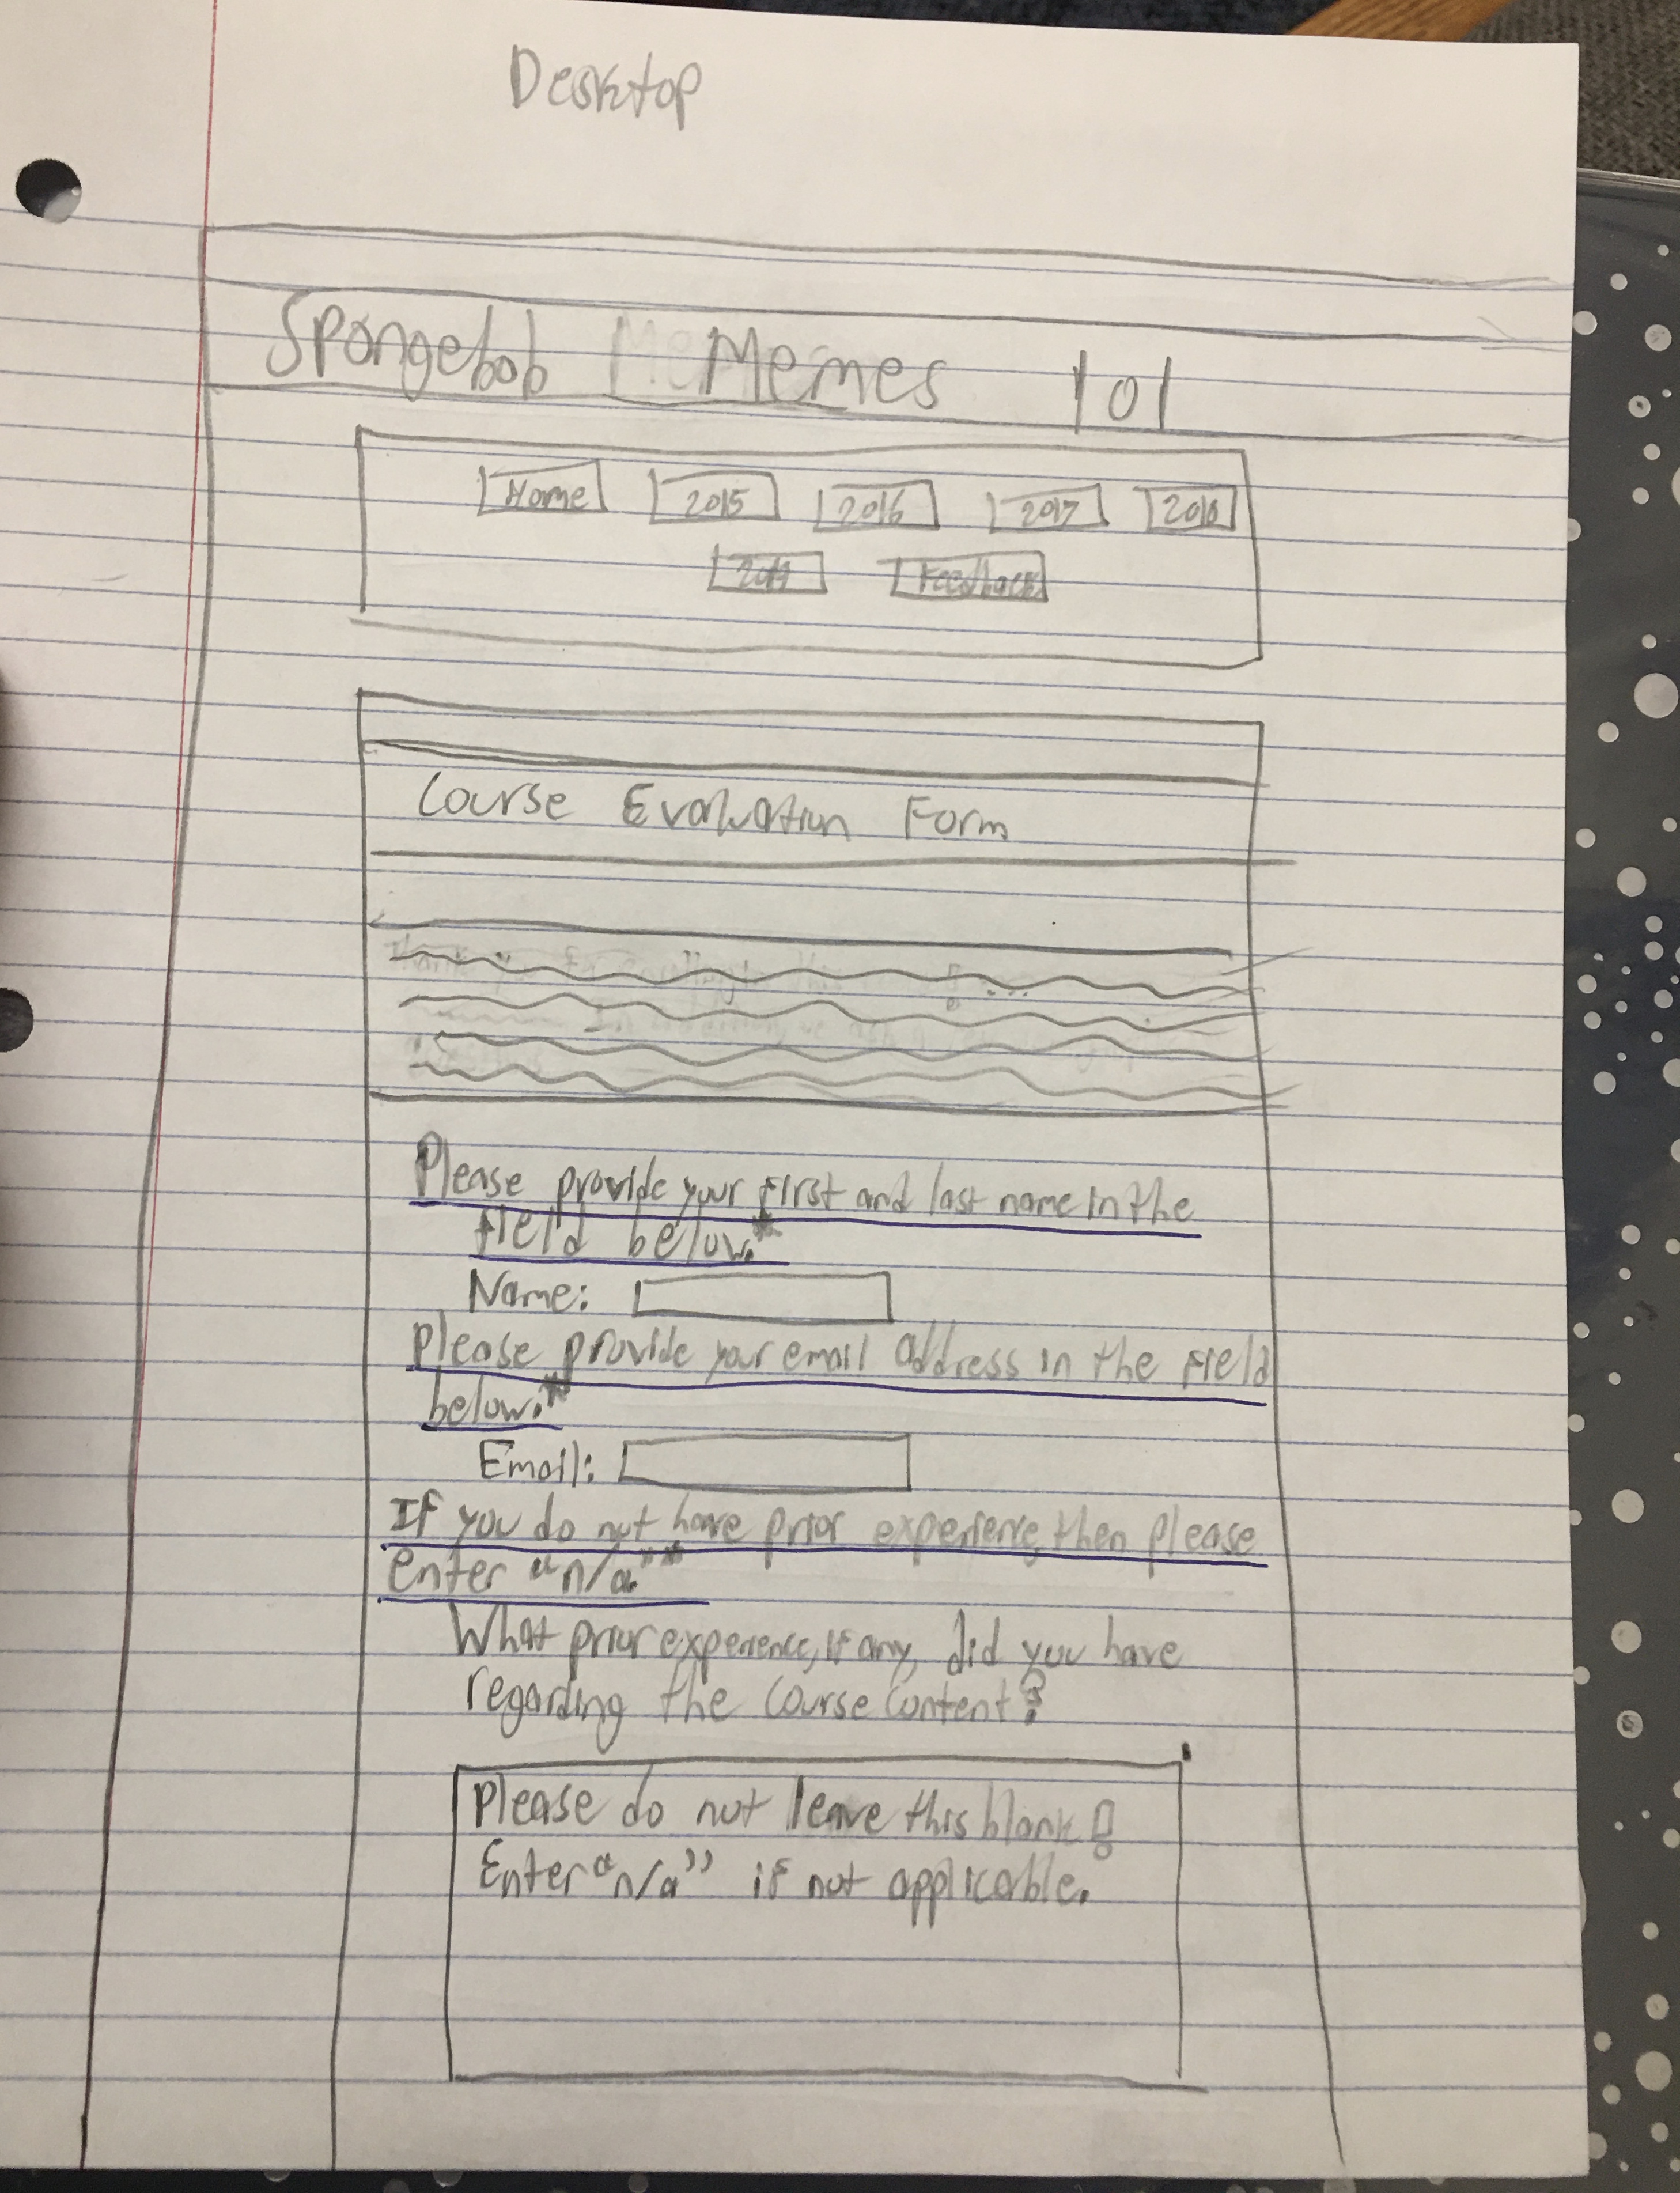 Desktop
Spongebob Memes 101
Home 2015 2016 2017 2018
2019 Feedback
Course Evaluation Form
Please provide your first and last name in the
field below.*
Name:
Please provide your email address in the field
below.*
Email:
If you do not have prior experience, then please
enter "n/a."*
What prior experience, if any, did you have
regarding the course content?
Please do not leave this blank!
Enter "n/a" if not applicable.